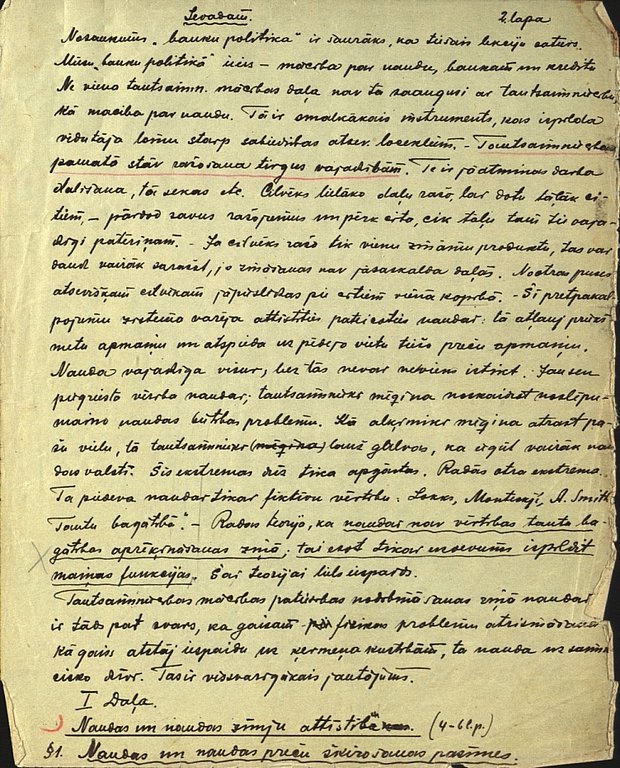 Ievadam.
2. lapa
Nosaukums „banku politika" ir šaurāks, ka tūšais lekciju saturs.
Mūsu „banku politikā" ieis – mācība par naudu, bankām un kredītu
Ne viena tautsaimn. mācības daļa nav tā saaugusi ar tautsaimniecību,
kā macība par naudu. Tā ir smalkākais instruments, kas izpilda
vidutāja lomu starp sabiedrības atsev. locekļiem. – Tautsaimniecības
pamatā stāv ražošana tirgus vajadzībām. Te ir jāatminas darba
dalīšana, tā sekas etc. Cilvēks lielāko daļu ražo, lai dotu tāļāk ci-
tiem, – pārdod savus ražojumus un pērk citu, cik tāļu tam tie vaja-
dzīgi patēriņam. – Ja cilvēks ražo tik vienu zināmu produktu, tas var
daudz vairāk saražot, jo zināšanas nav jāsaskalda daļās. No otras puses
atsevišķam cilvēkam jāpieslēdzas pie citiem viņā kopībā. – Šī pretpakal-
pojumu sistema varēja attīstīties pateicoties naudai: tā atļauj prēču
metu apmaiņu un atspieda uz pēdējo vietu tiešo preču apmaiņu.
Nauda vajadzīga visur, bez tās nevar neviens iztikt. Jau sen
piegriezta vērība naudai; tautsaimnieki mēģina noskaidrot noslēpu-
maino naudas būtības problēmu. Kā alķimiķi mēģina atrast pa-
šu vielu, tā tautsaimnieki (mēģina) lauž galvas, ka iegūt vairāk nau-
das valstī. Šis ekstremas drīz tika apgāztas. Radās otra ekstrema.
Ta piedeva naudai tikai fiktīvu vērtību: Lokks, Monteskjē, A. Smith
„Tautu bagātībā". – Radās teorija, ka naudai nav vērtības tautu ba-
gātības aprēķināšanas ziņā; tai esot tikai uzdevums izpildīt
maiņas funkcijas. Šai teorijai liels iespaids.
Tautsaimniecības mācības patiesības nodibināšanas ziņā naudai
ir tāds pat svars, ka gaisam fizikas problēmu atrisināšanā
kā gaiss atstāj iespaidu uz ķermeņa kustībām, tā nauda uz saimn.
cisko dzīvi. Tas ir vissvarīgākais jautājums.
I Daļa.
Naudas un naudas zīmju attīstība. (4–61.p.)
§1. Naudas un naudas preču šķirošanas pazīmes.